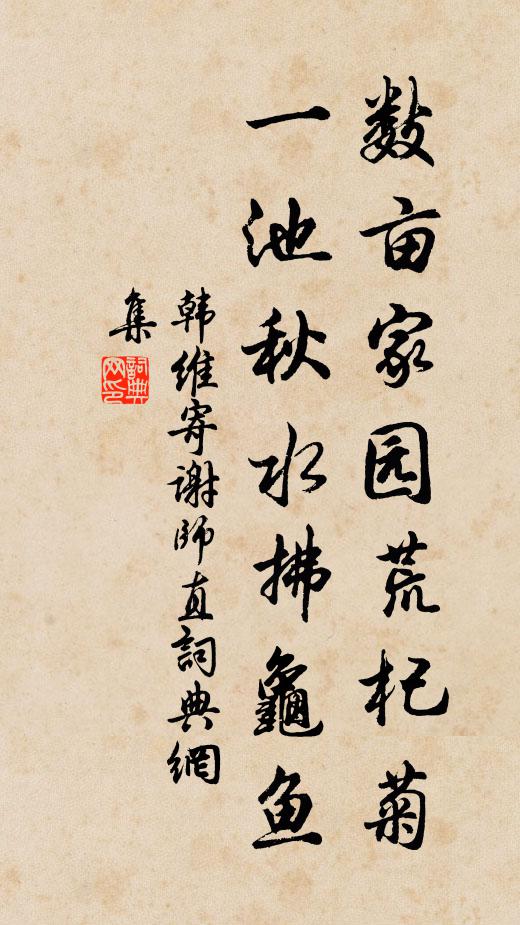 数亩家园荒杞菊
一池秋水拂龜鱼
韩维寄谢师直詞典網
集
詞典网印